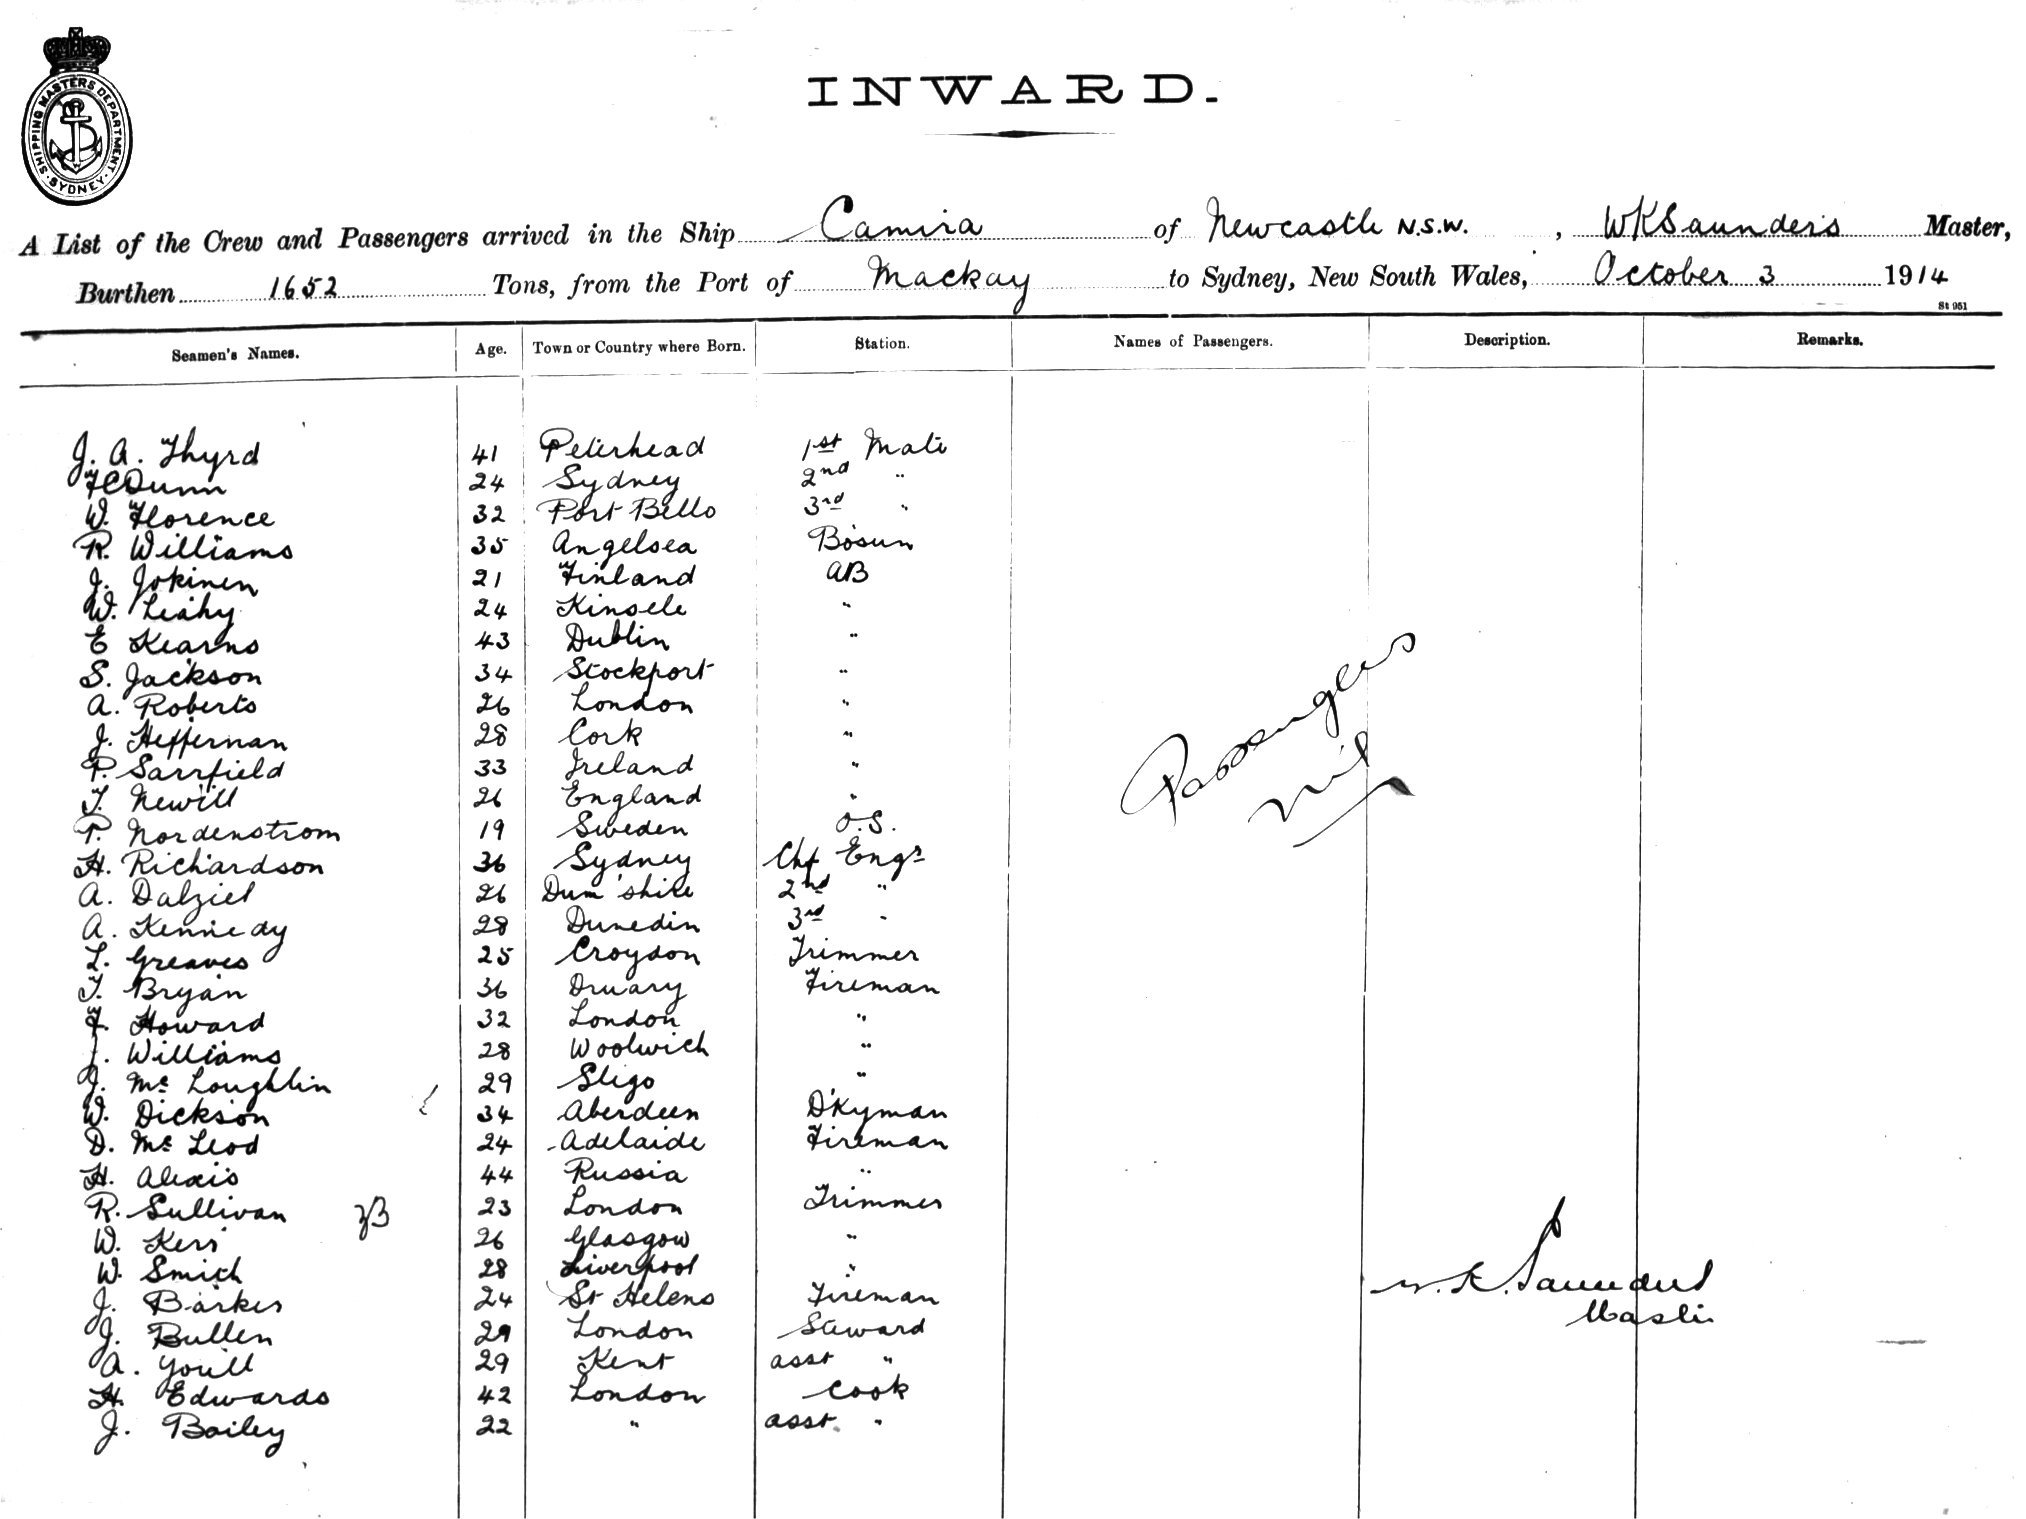 SHIPPING MASTERS DEPARTMENT. SYDNEY.
INWARD.
A List of the Crew and Passengers arrived in the Ship Camira of Newcastle N.S.W. , WKSaunders Master,
Burthen 1652 Tons, from the Port of Mackay to Sydney, New South Wales, October 3 1914
St 951
Seamen's Names. Age. Town or Country where Born. Station. Names of Passengers. Description. Remarks.
J. A. Thyrd 41 Peterhead 1st Mate
FCDunn 24 Sydney 2nd "
W. Florence 32 Port Bello 3rd "
R. Williams 35 Angelsea Bosun
J. Jokinen 21 Finland AB
W. Leahy 24 Kinsele "
E Kearns 43 Dublin "
S. Jackson 34 Stockport "
A. Roberts 26 London "
J. Heffernan 28 Cork "
P. Sarrfield 33 Ireland "
T. Newill 26 England "
P. Nordenstrom 19 Sweden O.S.
H. Richardson 36 Sydney Chf Engr
A. Dalziel 26 Dum'shire 2nd "
A. Kennedy 28 Dunedin 3rd "
L. Greaves 25 Croydon Trimmer
T. Bryan 36 Druary Fireman
F. Howard 32 London "
J. Williams 28 Woolwich "
J. Mc Loughlin 29 Sligo "
W. Dickson 34 Aberdeen D'Kyman
D. Mc Leod 24 Adelaide Fireman
H. Alexis 44 Russia "
R. Sullivan 23 London Trimmer
W. Kerr 26 Glasgow "
W. Smith 28 Liverpool "
J. Barker 24 St Helens Fireman
J. Bullen 29 London Steward
A. Youll 29 Kent asst "
H. Edwards 42 London Cook
J. Bailey 22 " asst. "
Passengers
nil
W. K. Saunders
Master